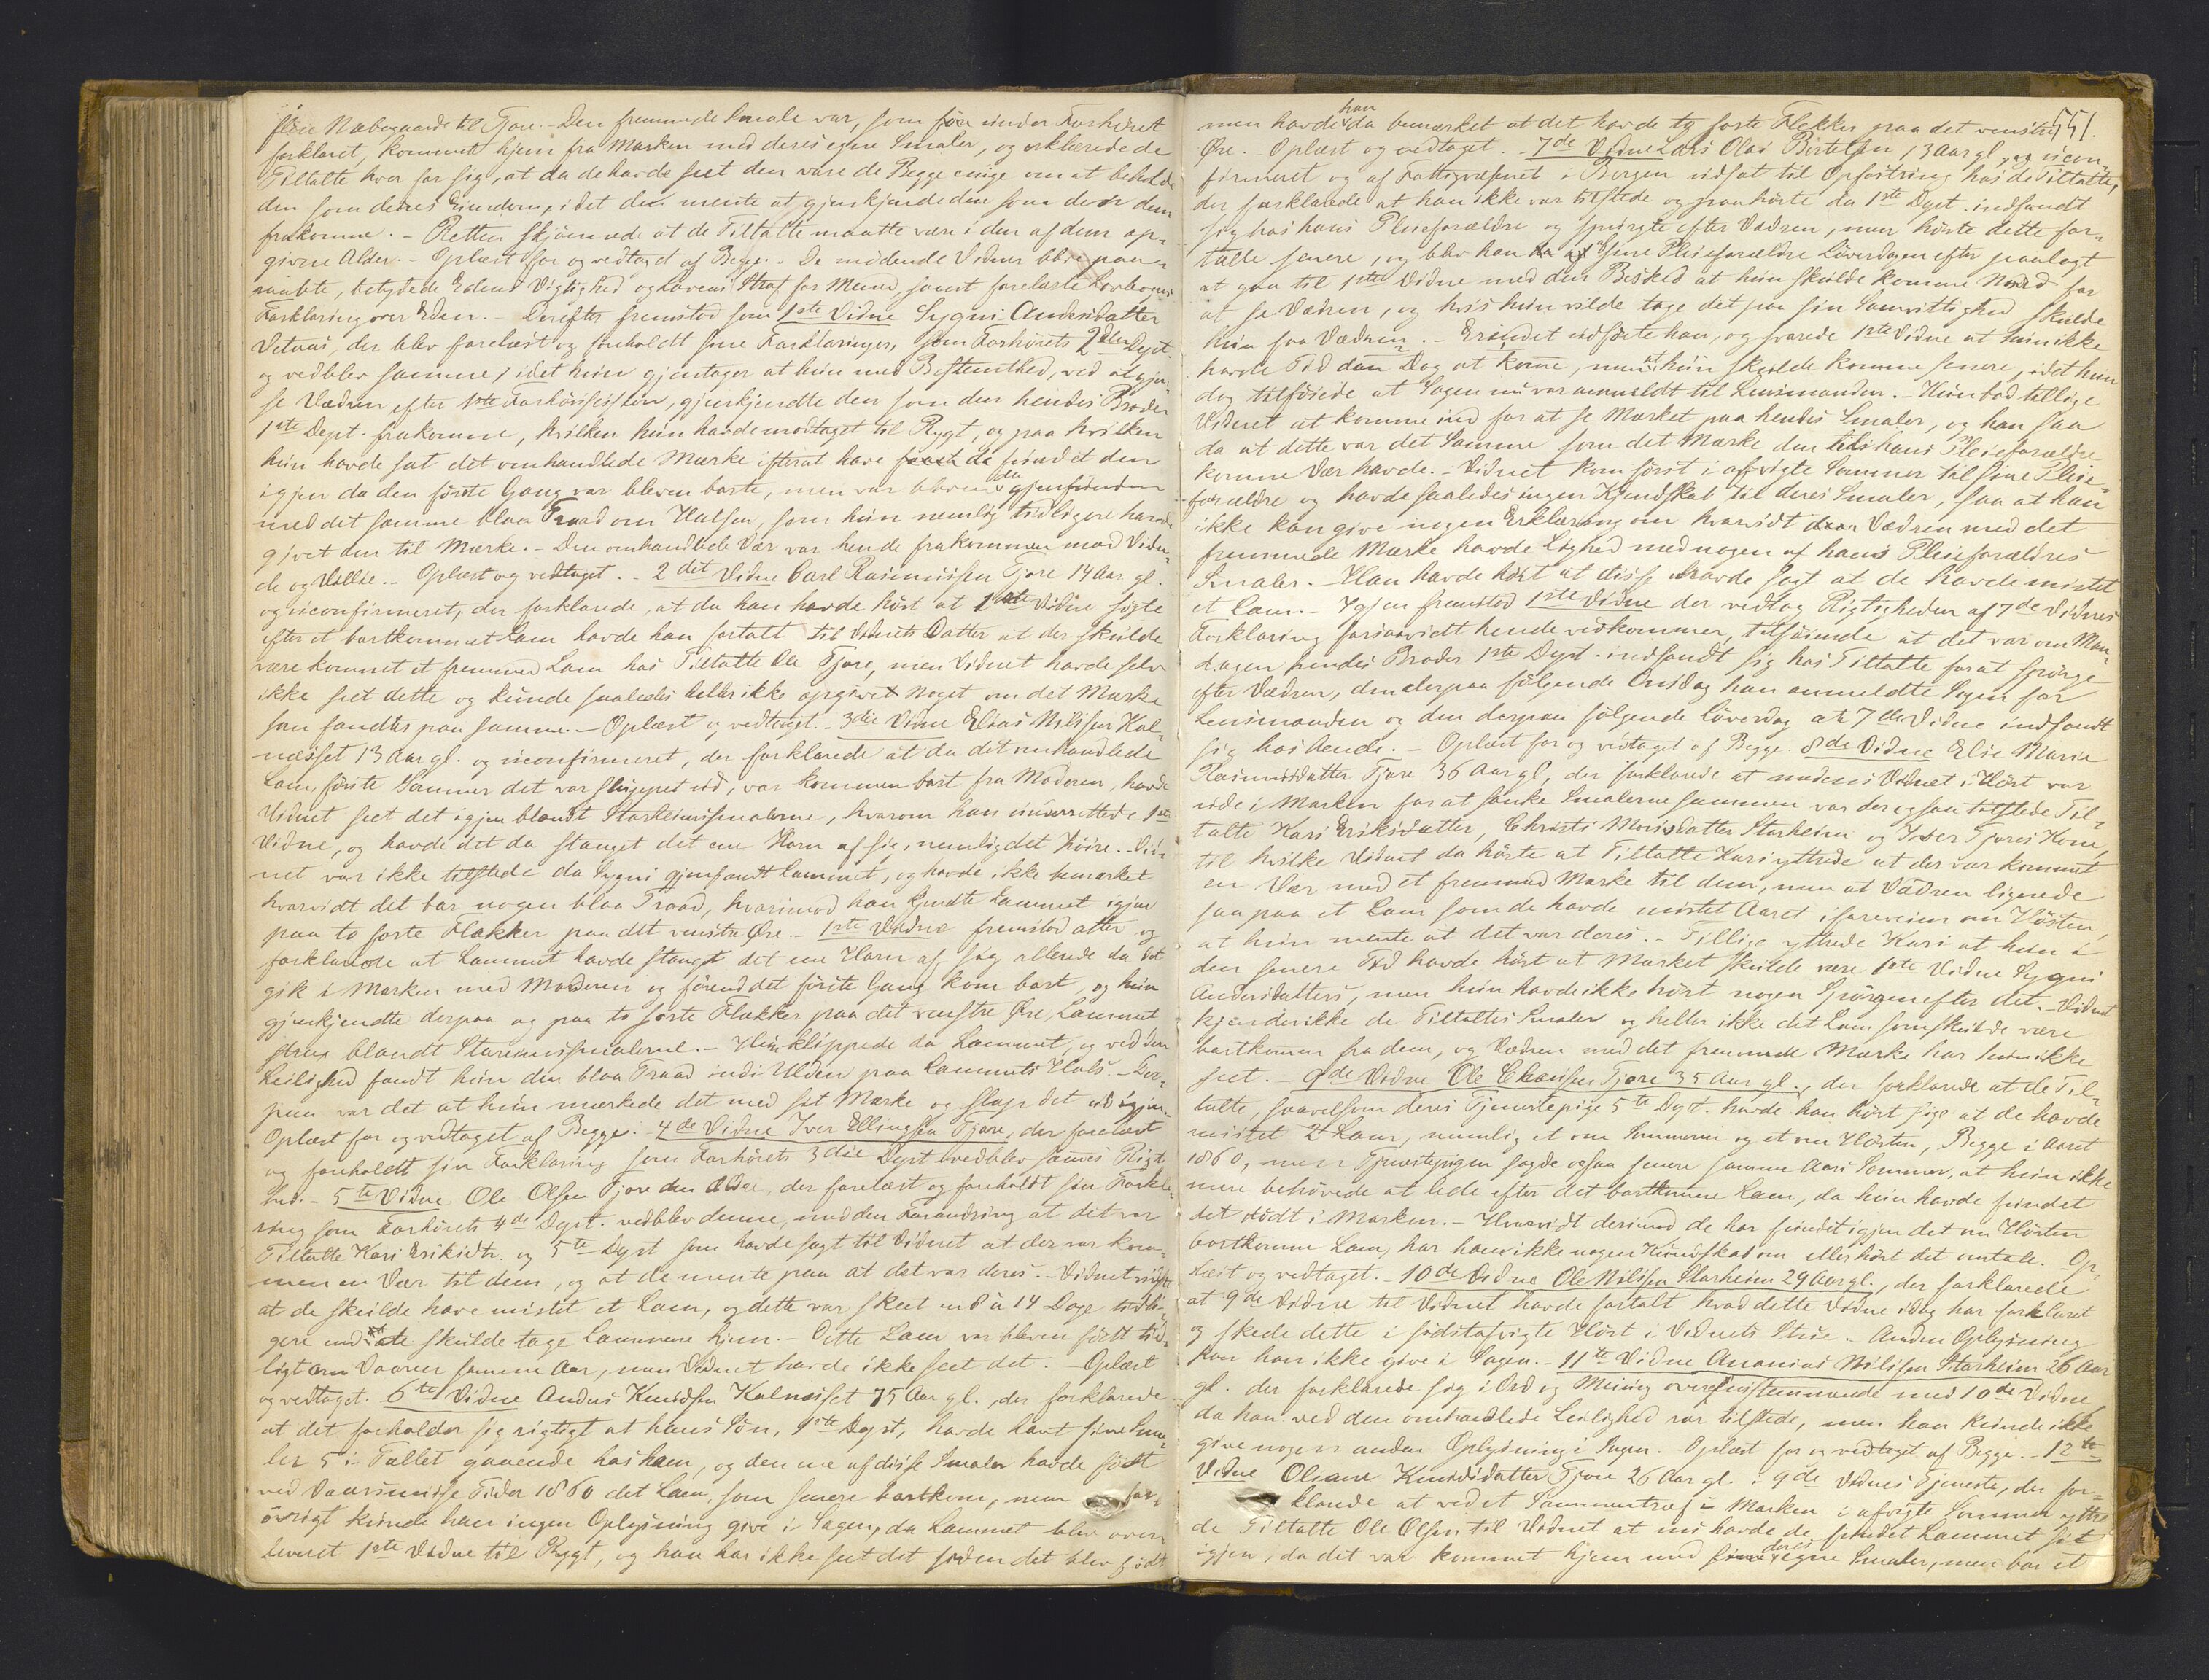 flere Nabogaarde til Tjore. - Den fremmede Smale var, som før under Forhøret
forklaret, kommet hjem fra Marken med deres egne Smaler, og erklærede de
Tiltalte hver for sig, at da de havde seet den vare de Begge enige om at beholde
den som deres Eiendom, idet de mente at gjenkjende den som den dem
frakomne. - Retten skjønnede at de Tiltalte maatte være i den af dem op-
givne Alder. - Oplæst for og vedtaget af Begge. - De mødende Vidner bleve paa-
raabte, betydede Edens Vigtighed og Lovens Straf for Meened samt forelæste Lovbogens
Forklaring over Eden. - Derefter fremstod som 1ste Vidne Sygni Andersdatter
Vetvas, der blev forelæst og foreholdt sine Forklaringer, som Forhørets 2den Dept.
og vedblev samme, idet hun gjentager at hun med Bestemthed, ved at gjen-
se Vædren efter 1ste Forhørsession, gjenkjendte den som den hendes Broder
1ste Dept. frakomne, hvilken hun havde modtaget til Rygt, og paa hvilken
hun havde sat det omhandlede Mærke efterat have faaet da fundet den
igjen da den første Gang var bleven borte, men var bleven da gjenfunden
med det samme blaa Traad om Halsen, som hun nemlig tidligere havde
givet den til Mærke. - Den omhandlede Vær var hende frakommen mod Viden-
de og Villie. - Oplæst og vedtaget. - 2det Vidne Carl Rasmussen Tjore 14 Aar gl.
og uconfirmeret, der forklarede, at da han havde hørt at 1ste Vidne søgte
efter et bortkommet Lam havde han fortalt til Vidnets Datter at der skulde
være kommet et fremmed Lam hos Tiltalte Ole Tjore, men Vidnet havde selv
ikke seet dette og kunde saaledes heller ikke opgivet noget om det Mærke
som fandtes paa samme. - Oplæst og vedtaget. - 3die Vidne Elias Nilsen Kal-
næsset 13 Aar gl. og uconfirmeret, der forklarede at da det omhandlede
Lam, første Sommer det var sluppet ud, var kommen bort fra Moderen, havde
Vidnet seet det igjen blandt Starheimssmalerne, hvorom han underrettede 1ste
Vidne, og havde det da stanget det ene Horn af sig, nemlig det Høire. - Vid-
net var ikke tilstede da Sygni gjenfandt Lammet, og havde ikke bemærket
hvorvidt det bar nogen blaa Traad, hvorimod han kjendte Lammet igjen
paa to sorte Flækker paa det venstre Øre. - 1ste Vidne fremstod atter og
forklarede at Lammet havde stanget det ene Horn af sig allerede da det
gik i Marken med Moderen og førend det første Gang kom bort, og hun
gjenkjendte derpaa og paa to sorte Flækker paa det venstre Øre, Lammet
strax blandt Staremssmalerne. - Hun klippede da Lammet, og ved den
Leilighed fandt hun den blaa Traad inde i Ulden paa Lammets Hals. - Der-
paa var det at hun mærkede det med sit Mærke og slap det ud igjen. -
Oplæst for og vedtaget af Begge. - 4de Vidne Iver Ellingsen Tjore, der forelæst
og foreholdt sin Forklaring som Forhørets 3die Dept. vedblev sammes Rigtig-
hed. - 5te Vidne Ole Olsen Tjore den Ældre, der forelæst og foreholdt sin Forkla-
ring som Forhørets 4de Dept. vedblev denne, med den Forandring at det var
Tiltalte Kari Eriksdtr. og 5te Dept som havde sagt til Vidnet at der var kom-
men en Vær til dem, og at de mente paa at det var deres. - Vidnet vidste
at de skulde have mistet et Lam, og dette var skeet en 8 à 14 Dage tidli-
gere end at de skulde tage Lammene hjem. - Dette Lam var bleven født tid-
ligt om Vaaren samme Aar, men Vidnet havde ikke seet det. - Oplæst
og vedtaget. 6te Vidne Anders Knudsen Kalnæsset 75 Aar gl., der forklarede
at det forholder sig rigtigt at hans Søn, 1ste Dept, havde havt sine Sma-
ler 5 i Tallet gaaende hos ham, og den ene af disse Smaler havde født
ved Vaarsmisse Tider 1860 det Lam, som senere bortkom, men for-
øvrigt kunde han ingen Oplysning give i Sagen, da Lammet blev over-
leveret 1ste Vidne til Rygt, og han har ikke seet det siden det blev født
551.
men havde han da bemærket at det havde to sorte Flekker paa det venstre
Øre. - Oplæst og vedtaget. - 7de Vidne Lars Olai Bertelsen 13 Aar gl, og ucon-
firmeret og af Fattigvæsenet i Bergen udsat til Opfostring hos de Tiltalte,
der forklarede at han ikke var tilstede og paahørte da 1ste Dept. indfandt
sig hos hans Pleieforældre og spurgte efter Vædren, men hørte dette for-
talle senere, og blev han da af sine Pleieforældre Løverdagen efter paalagt
at gaa til 1ste Vidne med den Besked at hun skulde komme Nord for
at se Vædren, og hvis hun vilde tage det paa sin Samvittighed skulde
hun faa Vædren. - Erindet udførte han, og svarede 1ste Vidne at hun ikke
havde Tid den Dag at komme, men at hun skulde komme senere, idet hun
dog tilføiede at Sagen nu var anmeldt til Lensmanden. - Hun bad tillige
Vidnet at komme ind for at se Mærket paa hendes Smaler, og han saa
da at dette var det Samme som det Mærke den til hans Pleieforældre
komne Vær havde. - Vidnet kom først i afvigte Sommer til sine Pleie-
forældre og havde saaledes ingen Kjendskab til deres Smaler, saa at han
ikke kan give nogen Erklæring om hvorvidt Vædren med det
fremmede Mærke havde Lighed med nogen af hans Pleieforældres
Smaler. - Han havde hørt at disse havde sagt at de havde mistet
et Lam. - Igjen fremstod 1ste Vidne der vedtog Rigtigheden af 7de Vidnes
Forklaring forsaavidt hende vedkommer, tilføiende at det var om Man-
dagen hendes Broder 1ste Dept. indfandt sig hos Tiltalte for at spørge
efter Vædren, den derpaa følgende Onsdag han anmeldte Sagen for
Lensmanden og den derpaa følgende Løverdag at 7de Vidne indfandt
sig hos hende. - Oplæst for og vedtaget af Begge. 8de Vidne Elie Marie
Rasmusdatter Tjore 36 Aar gl, der forklarede at medens Vidnet i Høst var
ude i Marken for at sanke Smalerne sammen var der ogsaa tilstede Til-
talte Kari Eriksdatter, Christi Monsdatter Starheim og Iver Tjores Kone,
til hvilke Vidnet da hørte at Tiltalte Kari yttrede at der var kommet
en Vær med et fremmed Mærke til dem, men at Vædren lignede
saa paa et Lam som de havde mistet Aaret iforveien om Høsten,
at hun mente at det var deres. - Tillige yttrede Kari at hun i
den senere Tid havde hørt at Mærket skulde være 1ste Vidne Sygni
Andersdatters, men hun havde ikke hørt nogen Spørgen efter det. - Vidnet
kjender ikke de Tiltaltes Smaler og heller ikke det Lam som skulde være
bortkommen fra dem, og Vædren med det fremmede Mærke har hun ikke
seet. - 9de Vidne Ole Tjore 35 Aar gl., der forklarede at de Til-
talte, saavelsom deres Tjenestepige 5te Dept. havde han hørt sige at de havde
mistet 2 Lam, nemlig et om Sommeren og et om Høsten, Begge i Aaret
1860, men Tjenestepigen sagde ogsaa senere samme Aars Sommer, at hun ikke
mere behøvede at lede efter det bortkomne Lam, da hun havde fundet
det dødt i Marken. - Hvorvidt derimod de har fundet igjen det om Høsten
bortkomne Lam, har han ikke nogen Kundskab om eller hørt det omtale. Op-
læst og vedtaget. - 10de Vidne Ole Nilsen Starheim 29 Aar gl., der forklarede
at 9de Vidne til Vidnet havde fortalt hvad dette Vidne idag har forklaret
og skede dette i sidstafvigte Høst i Vidnets Stue. - Anden Oplysning
kan han ikke give i Sagen. - 11te Vidne Ananias Nilsen Starheim 26 Aar
gl. der forklarede sig i Ord og Mening overensstemmende med 10de Vidne,
da han ved den omhandlede Leilighed var tilstede, men han kunde ikke
give nogen anden Oplysning i Sagen. Oplæst for og vedtaget af Begge. - 12te
Vidne Oliane Knudsdatter Tjore 26 Aar gl. i 9de Vidnes Tjeneste, der for-
klarede at ved et Sammentræf i Marken i afvigte Sommer yttre-
de Tiltalte Ole Olsen til Vidnet at nu havde de fundet Lammet sit
igjen, da det var kommet hjem med deres egne Smaler, men bar et